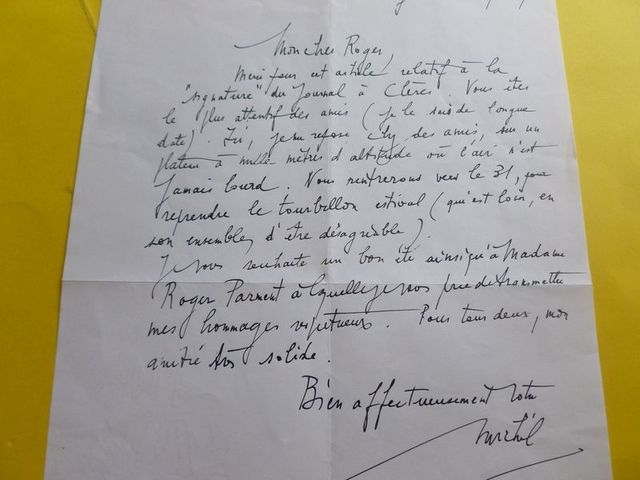 Mon cher Roger,
Merci pour cet article relatif à la
"signature" du Journal à Clères. Vous êtes
le plus attentif des amis (je le sais de longue
date). Ici, je me repose chez des amis, sur un
plateau à mille mètres d'altitude où l'air n'est
jamais lourd. Nous rentrerons vers le 31, pour
reprendre le tourbillon estival (qu'est loin, en
son ensemble, d'être désagréable).
Je vous souhaite un bon été ainsi qu'à Madame
Roger Parment à laquelle je vous prie de transmettre
mes hommages respectueux. Pour tous deux, mon
amitié très solide.
Bien affectueusement votre
Michel